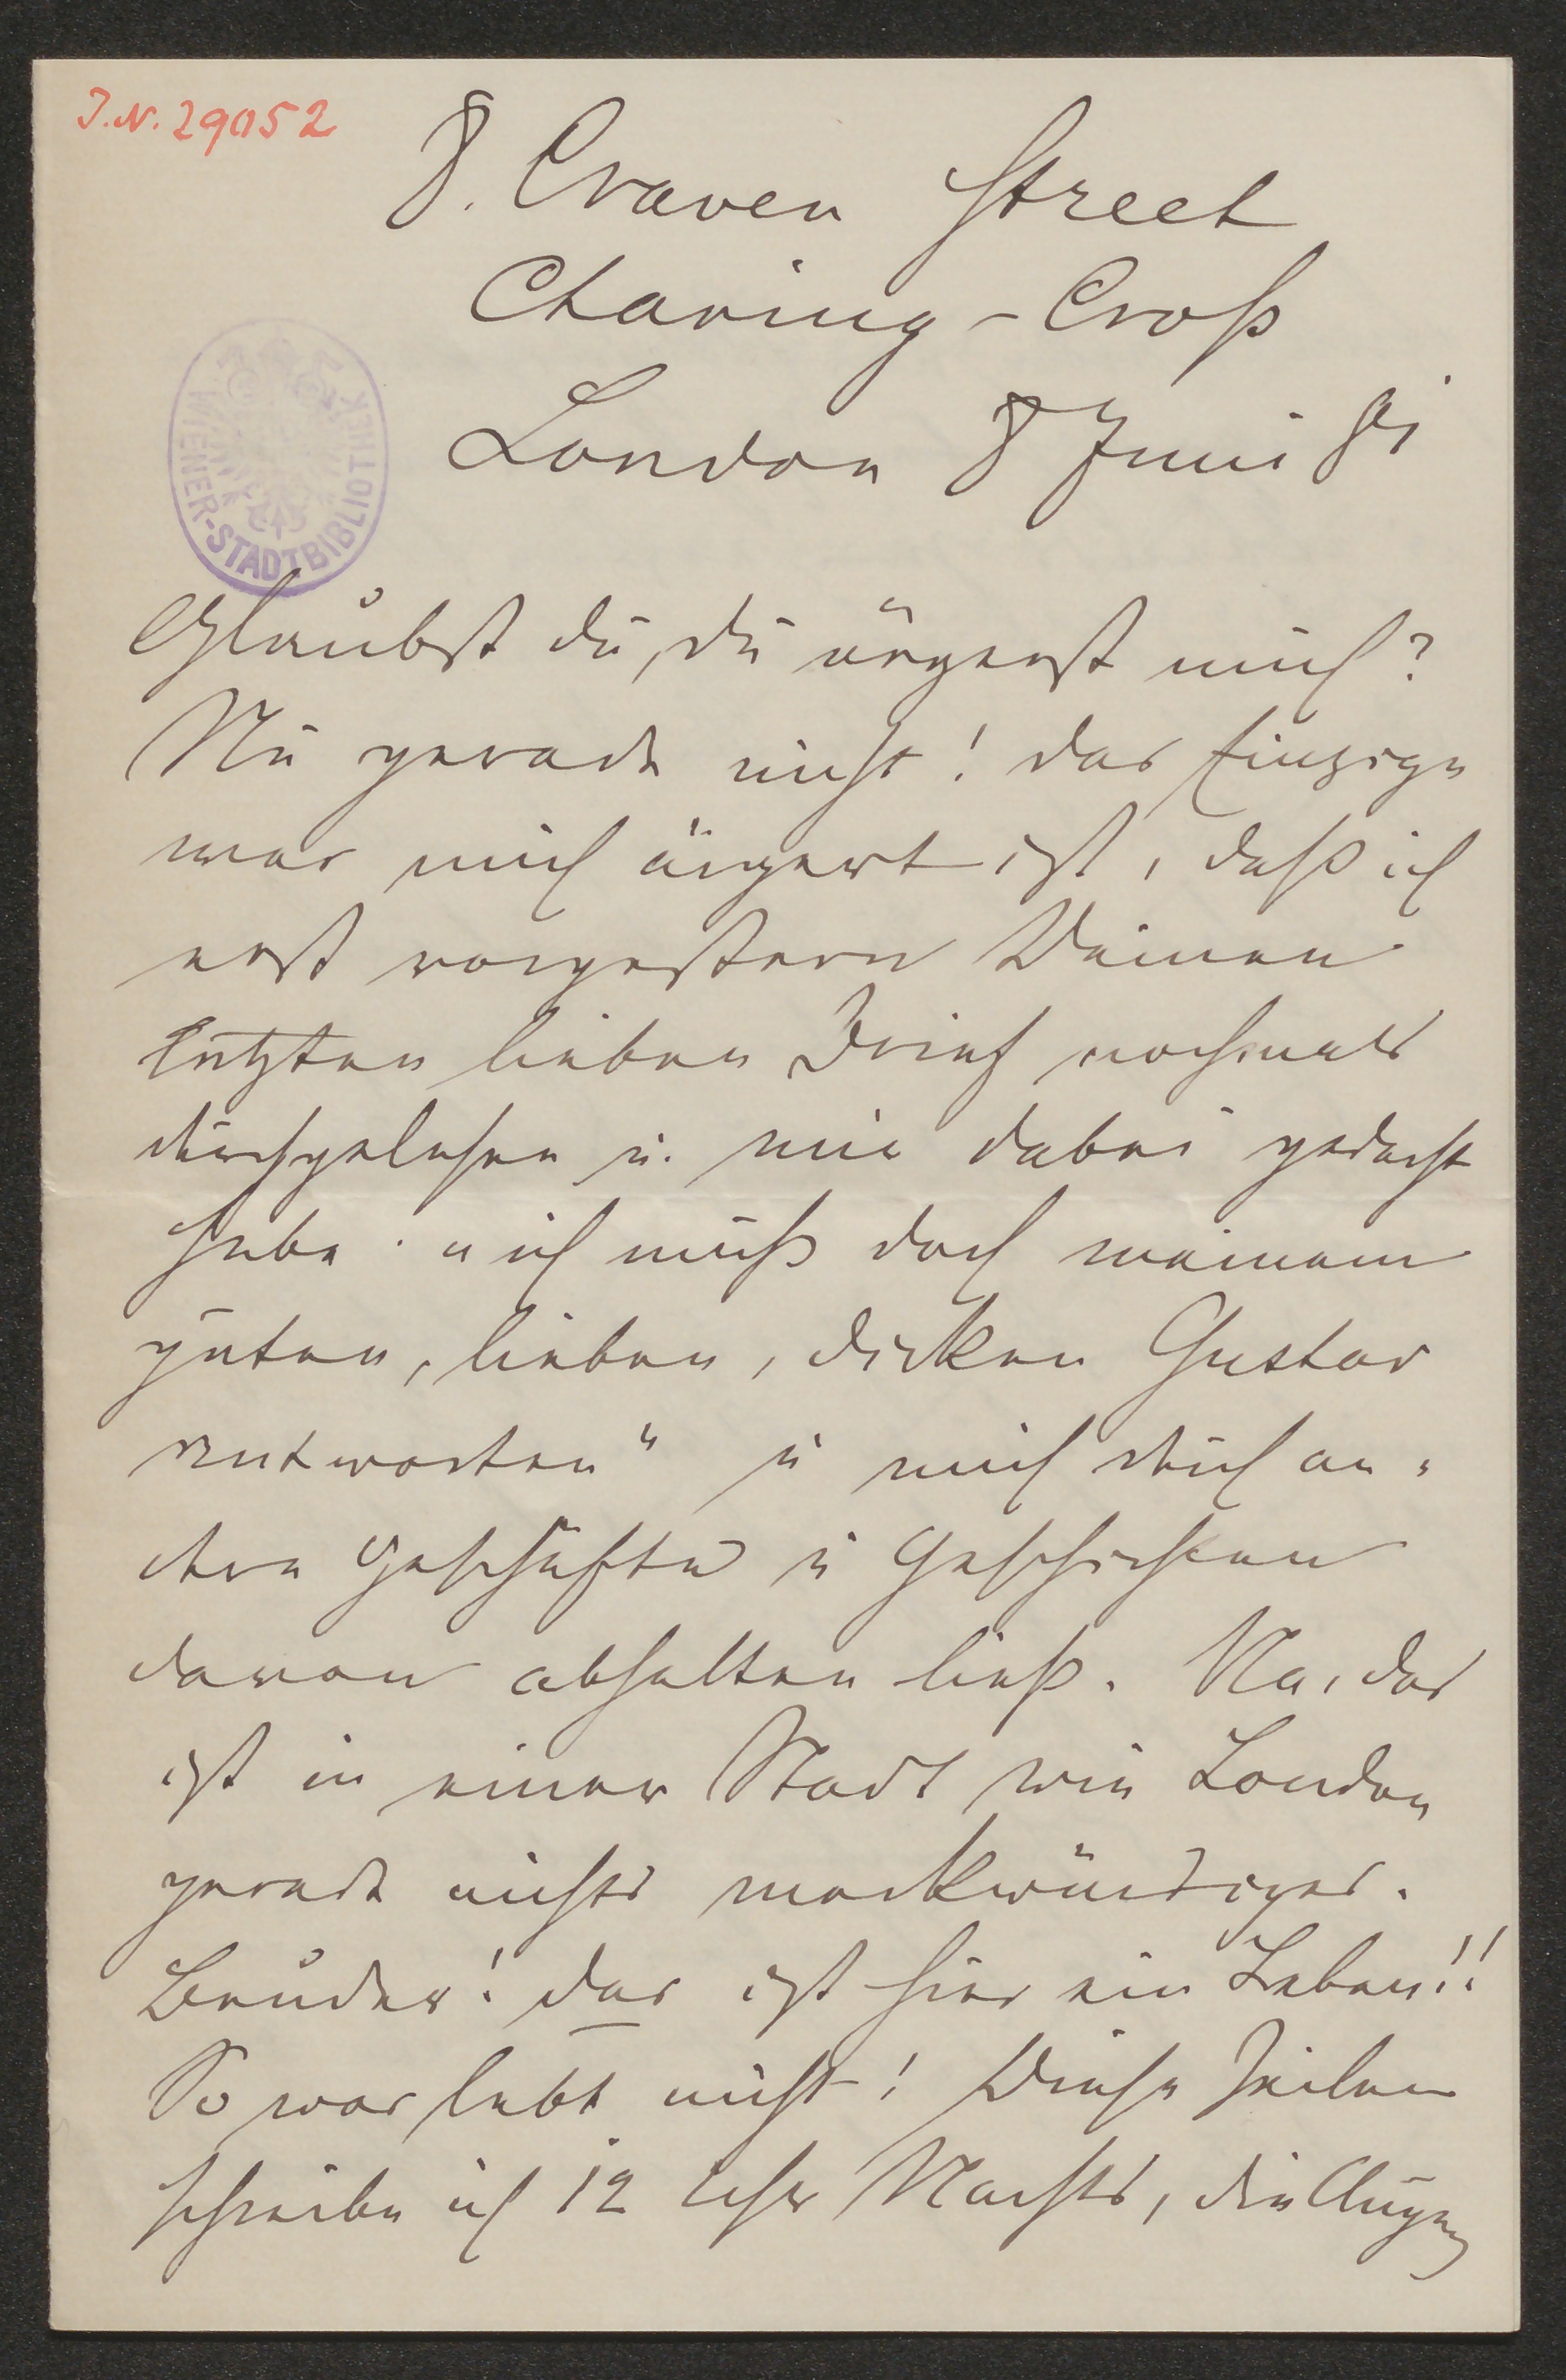 J.N. 29052
8. Craven Street
Charing-Croß
London 8 Juni 81
WIENER-STADTBIBLIOTHEK
Glaubst du, du ärgerst mich?
Nu gerade nicht! das Einzige
was mich ärgert ist, daß ich
erst vorgestern Deinen
letzten lieben Brief nochmals
durchgelesen u. mir dabei gedacht
habe: „ich muß doch meinem
guten, lieben, dicken Gustav
antworten“ u mich durch an=
dere Geschäfte u Geschichten
davon abhalten ließ. Na, das
ist in einer Stadt wie London
gerade nichts merkwürdiges.
Bruder! das ist hier ein Leben!!
So was lebt nicht! Diese Zeilen
schreibe ich 12 Uhr Nachts, die Augen